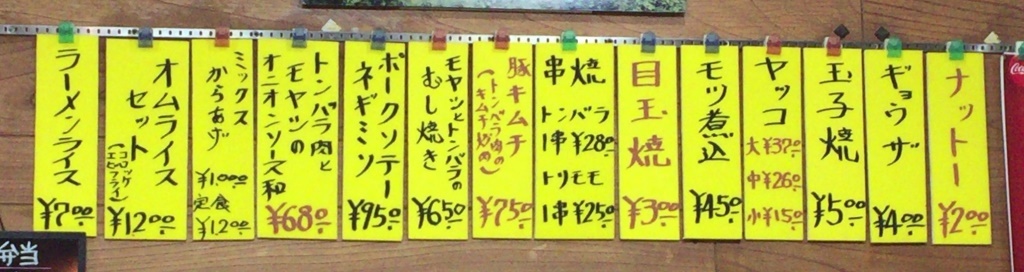 ナットー
¥200
ギョウザ
¥400
玉子焼
¥500
ヤッコ
大¥370
中¥260
小¥150
モツ煮込
¥450
目玉焼
¥300
串焼
トンバラ
1串¥280
トリモモ
1串¥250
豚キムチ
(トンバラ肉の
キムチ炒め)
¥750
モヤシとトンバラの
むし焼き
¥650
ポークソテー
ネギミソ
¥950
トンバラ肉と
モヤシの
オニオンソース和
¥680
ミックス
からあげ
¥1.000
定食
¥1.200
オムライス
セット
(コロッケ
エビフライ)
¥1200
ラーメンライス
¥700
弁当